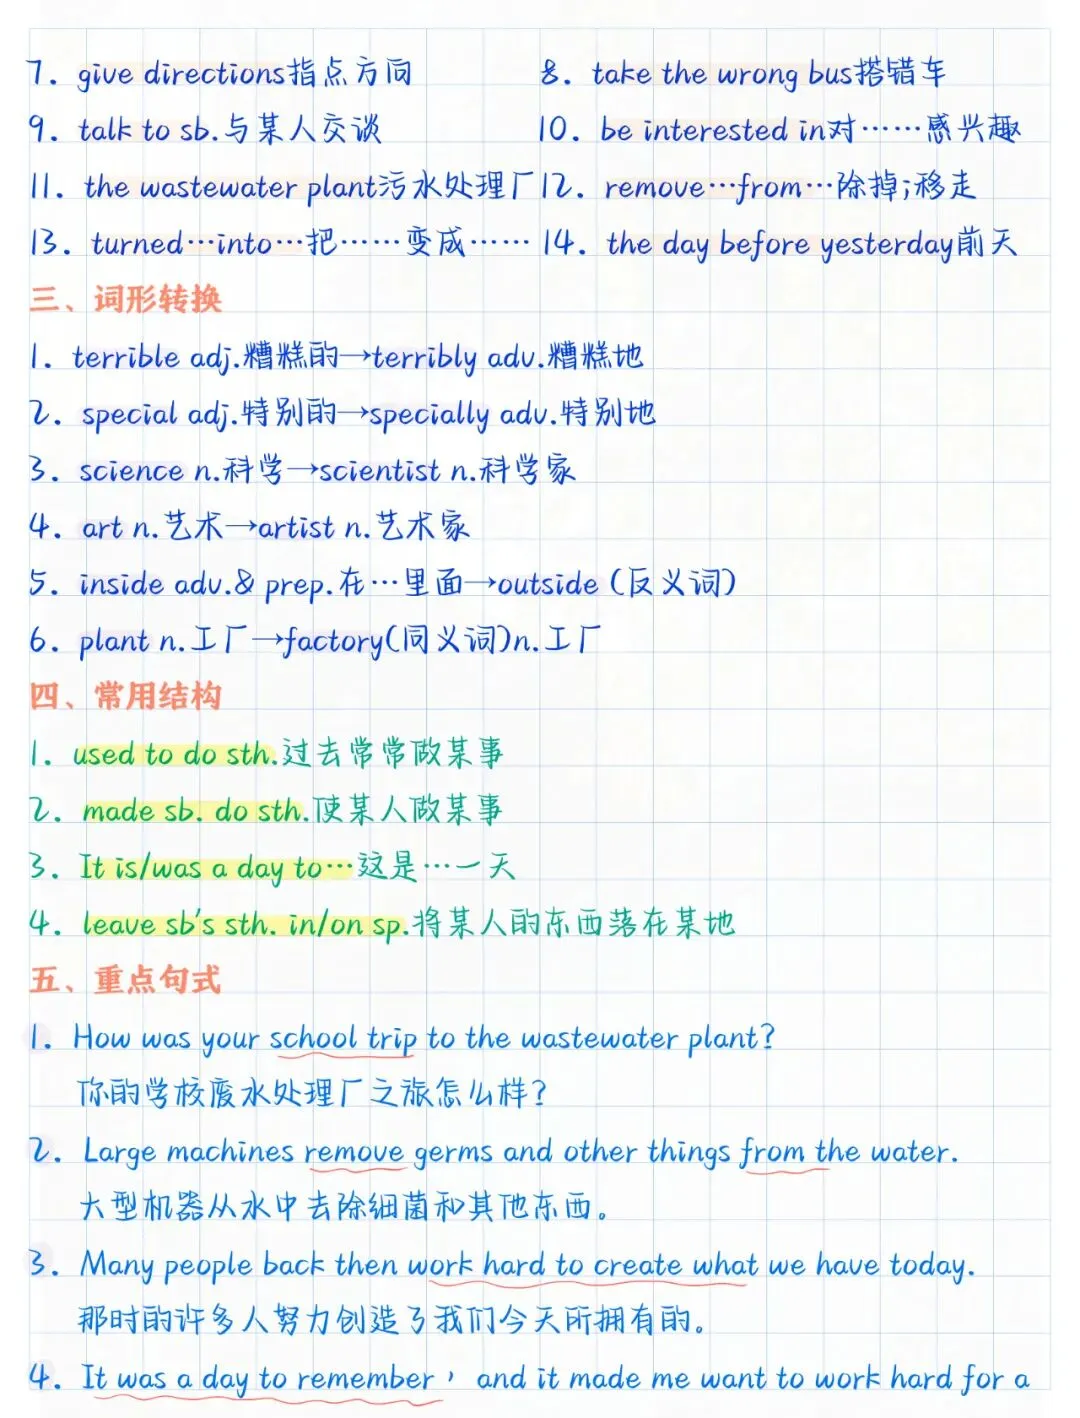 7. give directions指点方向 8. take the wrong bus搭错车
9. talk to sb.与某人交谈 10. be interested in对……感兴趣
11. the wastewater plant污水处理厂12. remove…from…除掉;移走
13. turned…into…把……变成…… 14. the day before yesterday前天
三、词形转换
1. terrible adj.糟糕的→terribly adv.糟糕地
2. special adj.特别的→specially adv.特别地
3. science n.科学→scientist n.科学家
4. art n.艺术→artist n.艺术家
5. inside adv.& prep.在…里面→outside (反义词)
6. plant n.工厂→factory(同义词)n.工厂
四、常用结构
1. used to do sth.过去常常做某事
2. made sb. do sth.使某人做某事
3. It is/was a day to…这是…一天
4. leave sb's sth. in/on sp.将某人的东西落在某地
五、重点句式
1. How was your school trip to the wastewater plant?
你的学校废水处理厂之旅怎么样?
2. Large machines remove germs and other things from the water.
大型机器从水中去除细菌和其他东西。
3. Many people back then work hard to create what we have today.
那时的许多人努力创造了我们今天所拥有的。
4. It was a day to remember, and it made me want to work hard for a